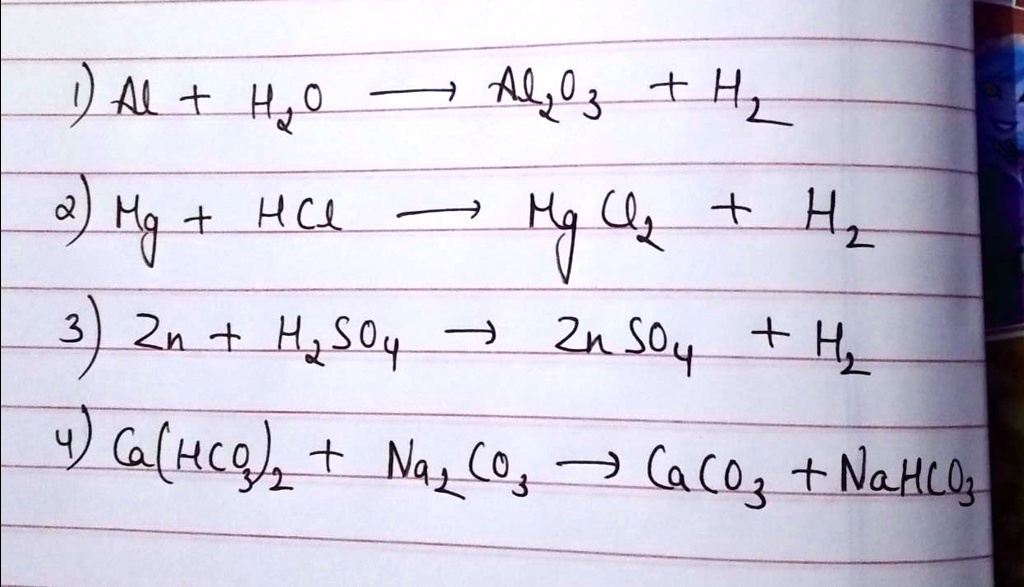 1) Al + H₂O ⟶ Al₂O₃ + H₂
2) Mg + HCl ⟶ MgCl₂ + H₂
3) Zn + H₂SO₄ → ZnSO₄ + H₂
4) Ca(HCO₃)₂ + Na₂CO₃ → CaCO₃ + NaHCO₃